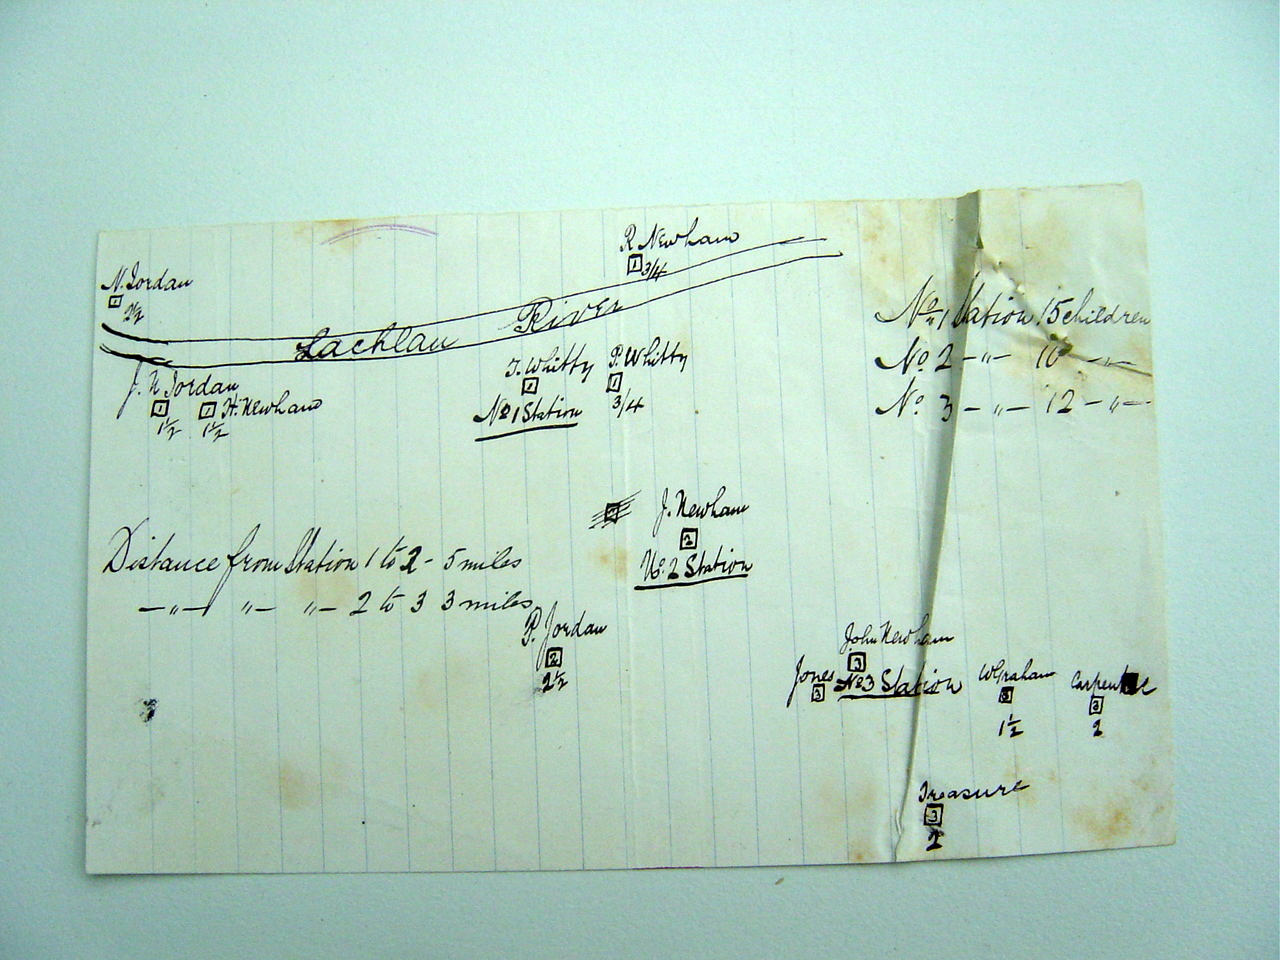 N. Jordan
1
2½
R Newham
1 3/4
Lachlan River
No. 1 Station 15 children
No. 2 -"- 10 -"-
No. 3 -"- 12 -"-
J. N Jordan
1
1½
1 H. Newham
1½
T. Whitty
1
No 1 Station
P. Whitty
1
3/4
J. Newham
2
No. 2 Station
Distance from Station 1 to 2 - 5 miles
-"- "- "- 2 to 3 3 miles
P. Jordan
2
2½
John Newham
3
No 3 Station
Jones
3
W Graham
3
1½
3
2
Treasure
3
2